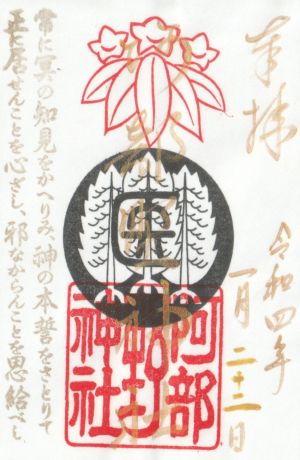 奉拝
令和四年
一月二十三日
阿部
神社
常に冥の知見をかへりみ、神の本誓をさとりて
正に居せんことを心ざし、邪なからんことを思給べし